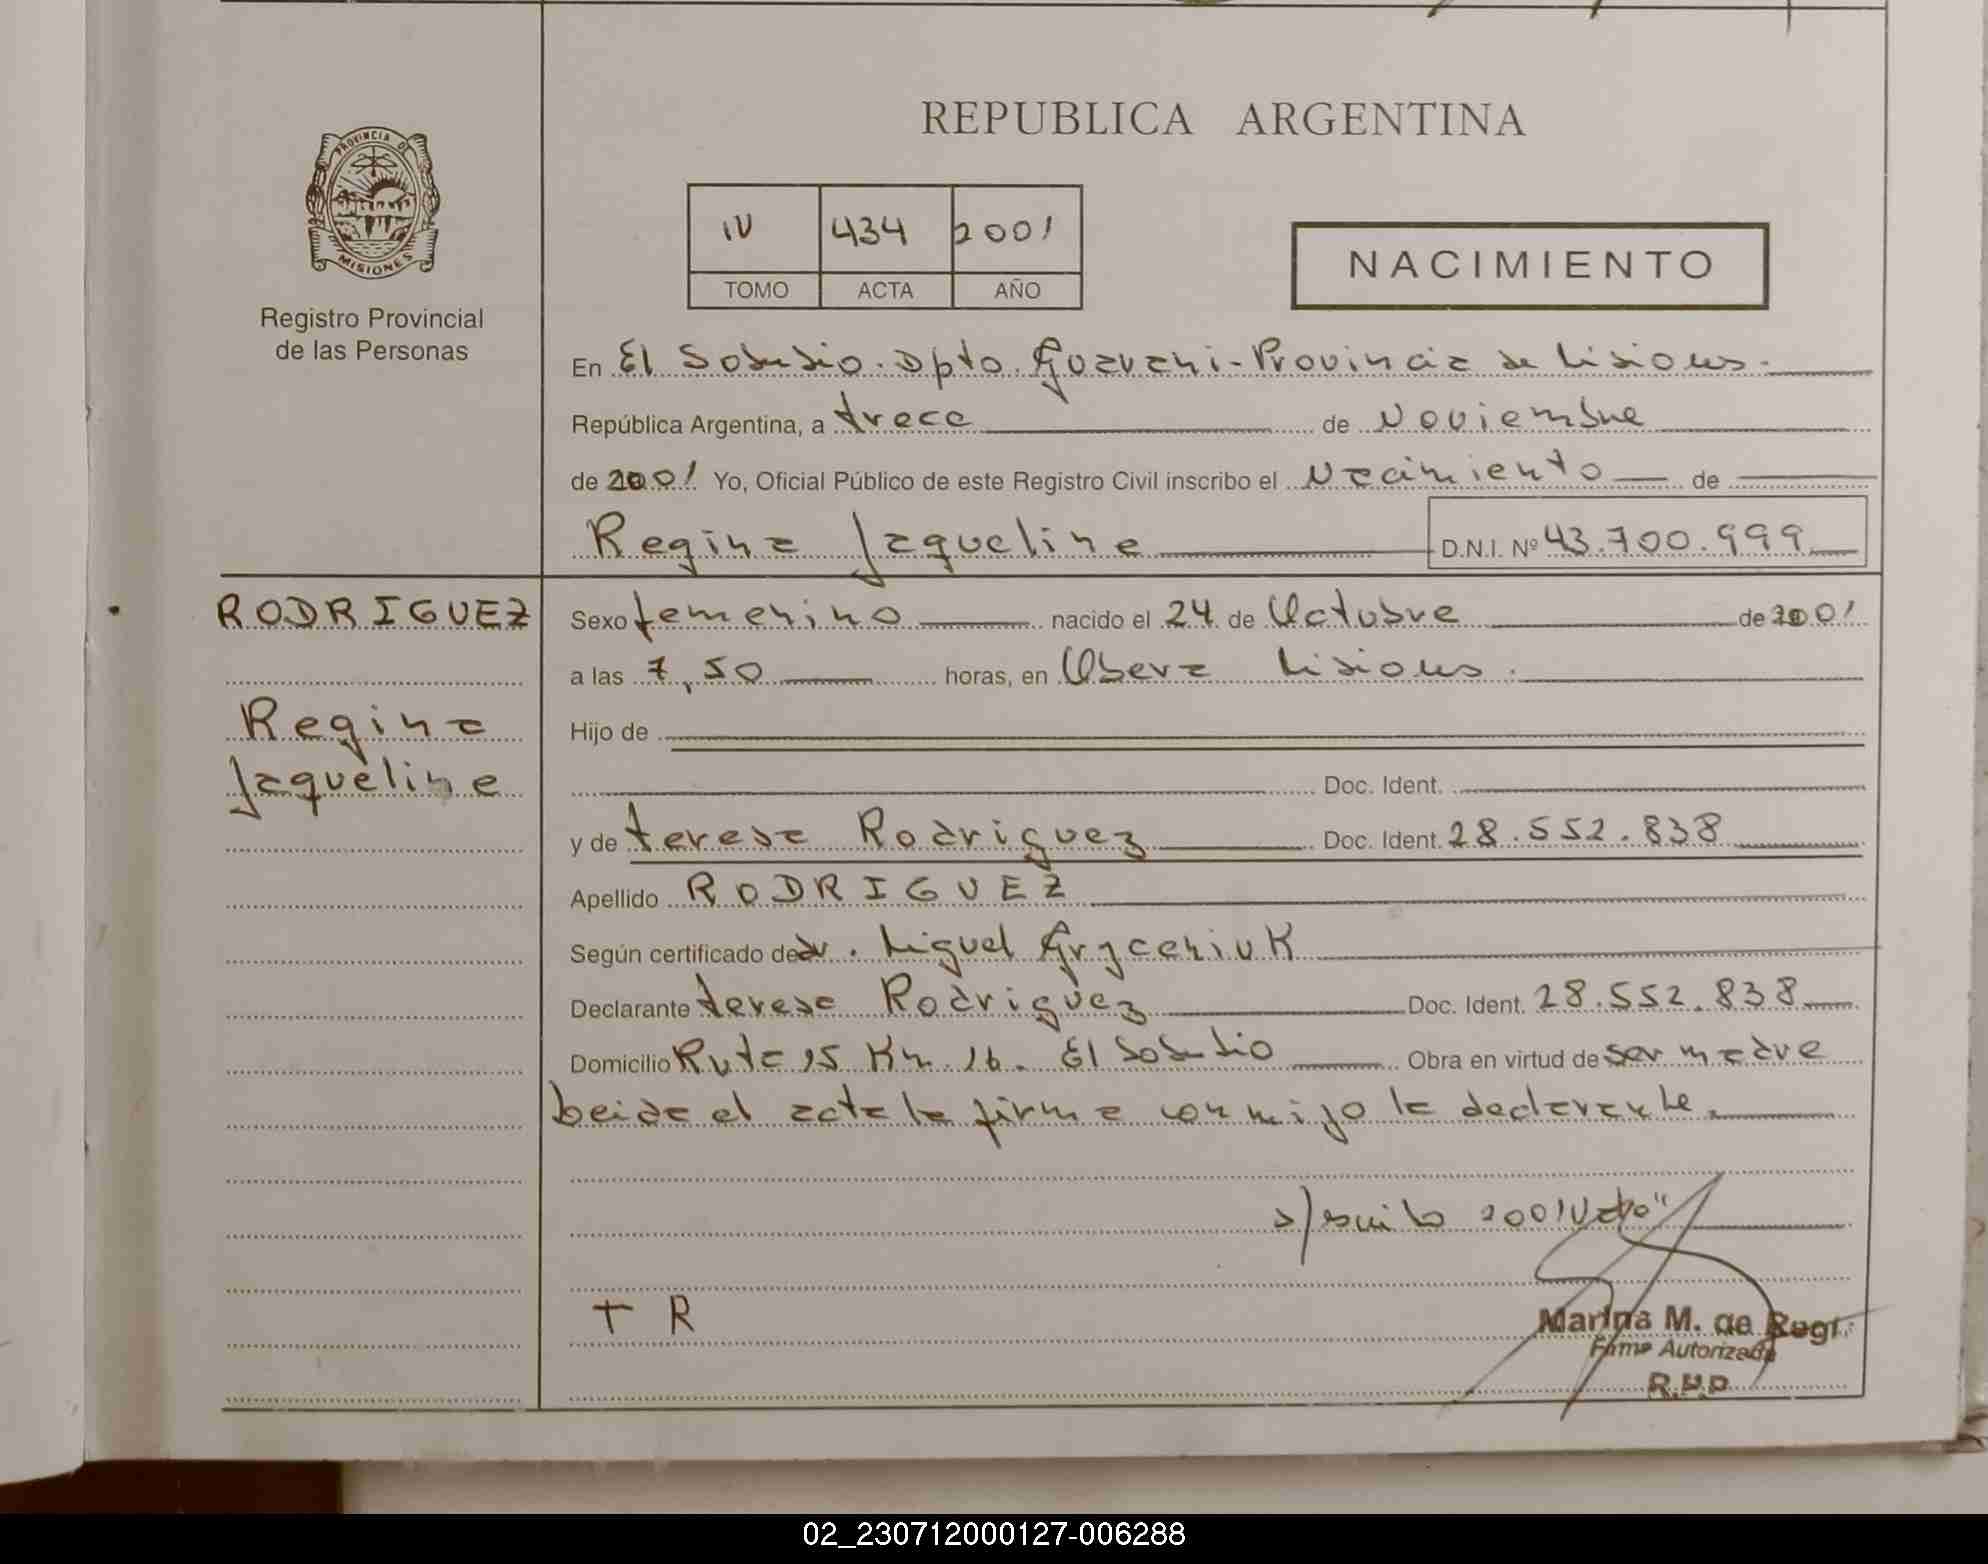 REPUBLICA ARGENTINA
PROVINCIA DE
MISIONES
Registro Provincial
de las Personas
IV 434 2001
TOMO ACTA AÑO
NACIMIENTO
En El Soberbio. Dpto. Guarani - Provincia de Misiones.
República Argentina, a trece de Noviembre
de 2001 Yo, Oficial Público de este Registro Civil inscribo el Nacimiento de
Regina Jaqueline D.N.I. Nº 43.700.999
RODRIGUEZ
Regina
Jaqueline
Sexo femenino nacido el 24 de Octubre de 2001
a las 7,50 horas, en Obera Misiones.
Hijo de
Doc. Ident.
y de teresa Rodriguez Doc. Ident. 28.552.838
Apellido RODRIGUEZ
Según certificado de dr. Miguel Gryceniuk
Declarante teresa Rodriguez Doc. Ident. 28.552.838
Domicilio Ruta 15 Km. 16. El Soberbio Obra en virtud de ser madre
leida el acta la firma conmigo la declarante.
2001
T R
Marina M. de
Firma Autorizada
R.P.P
02_230712000127-006288